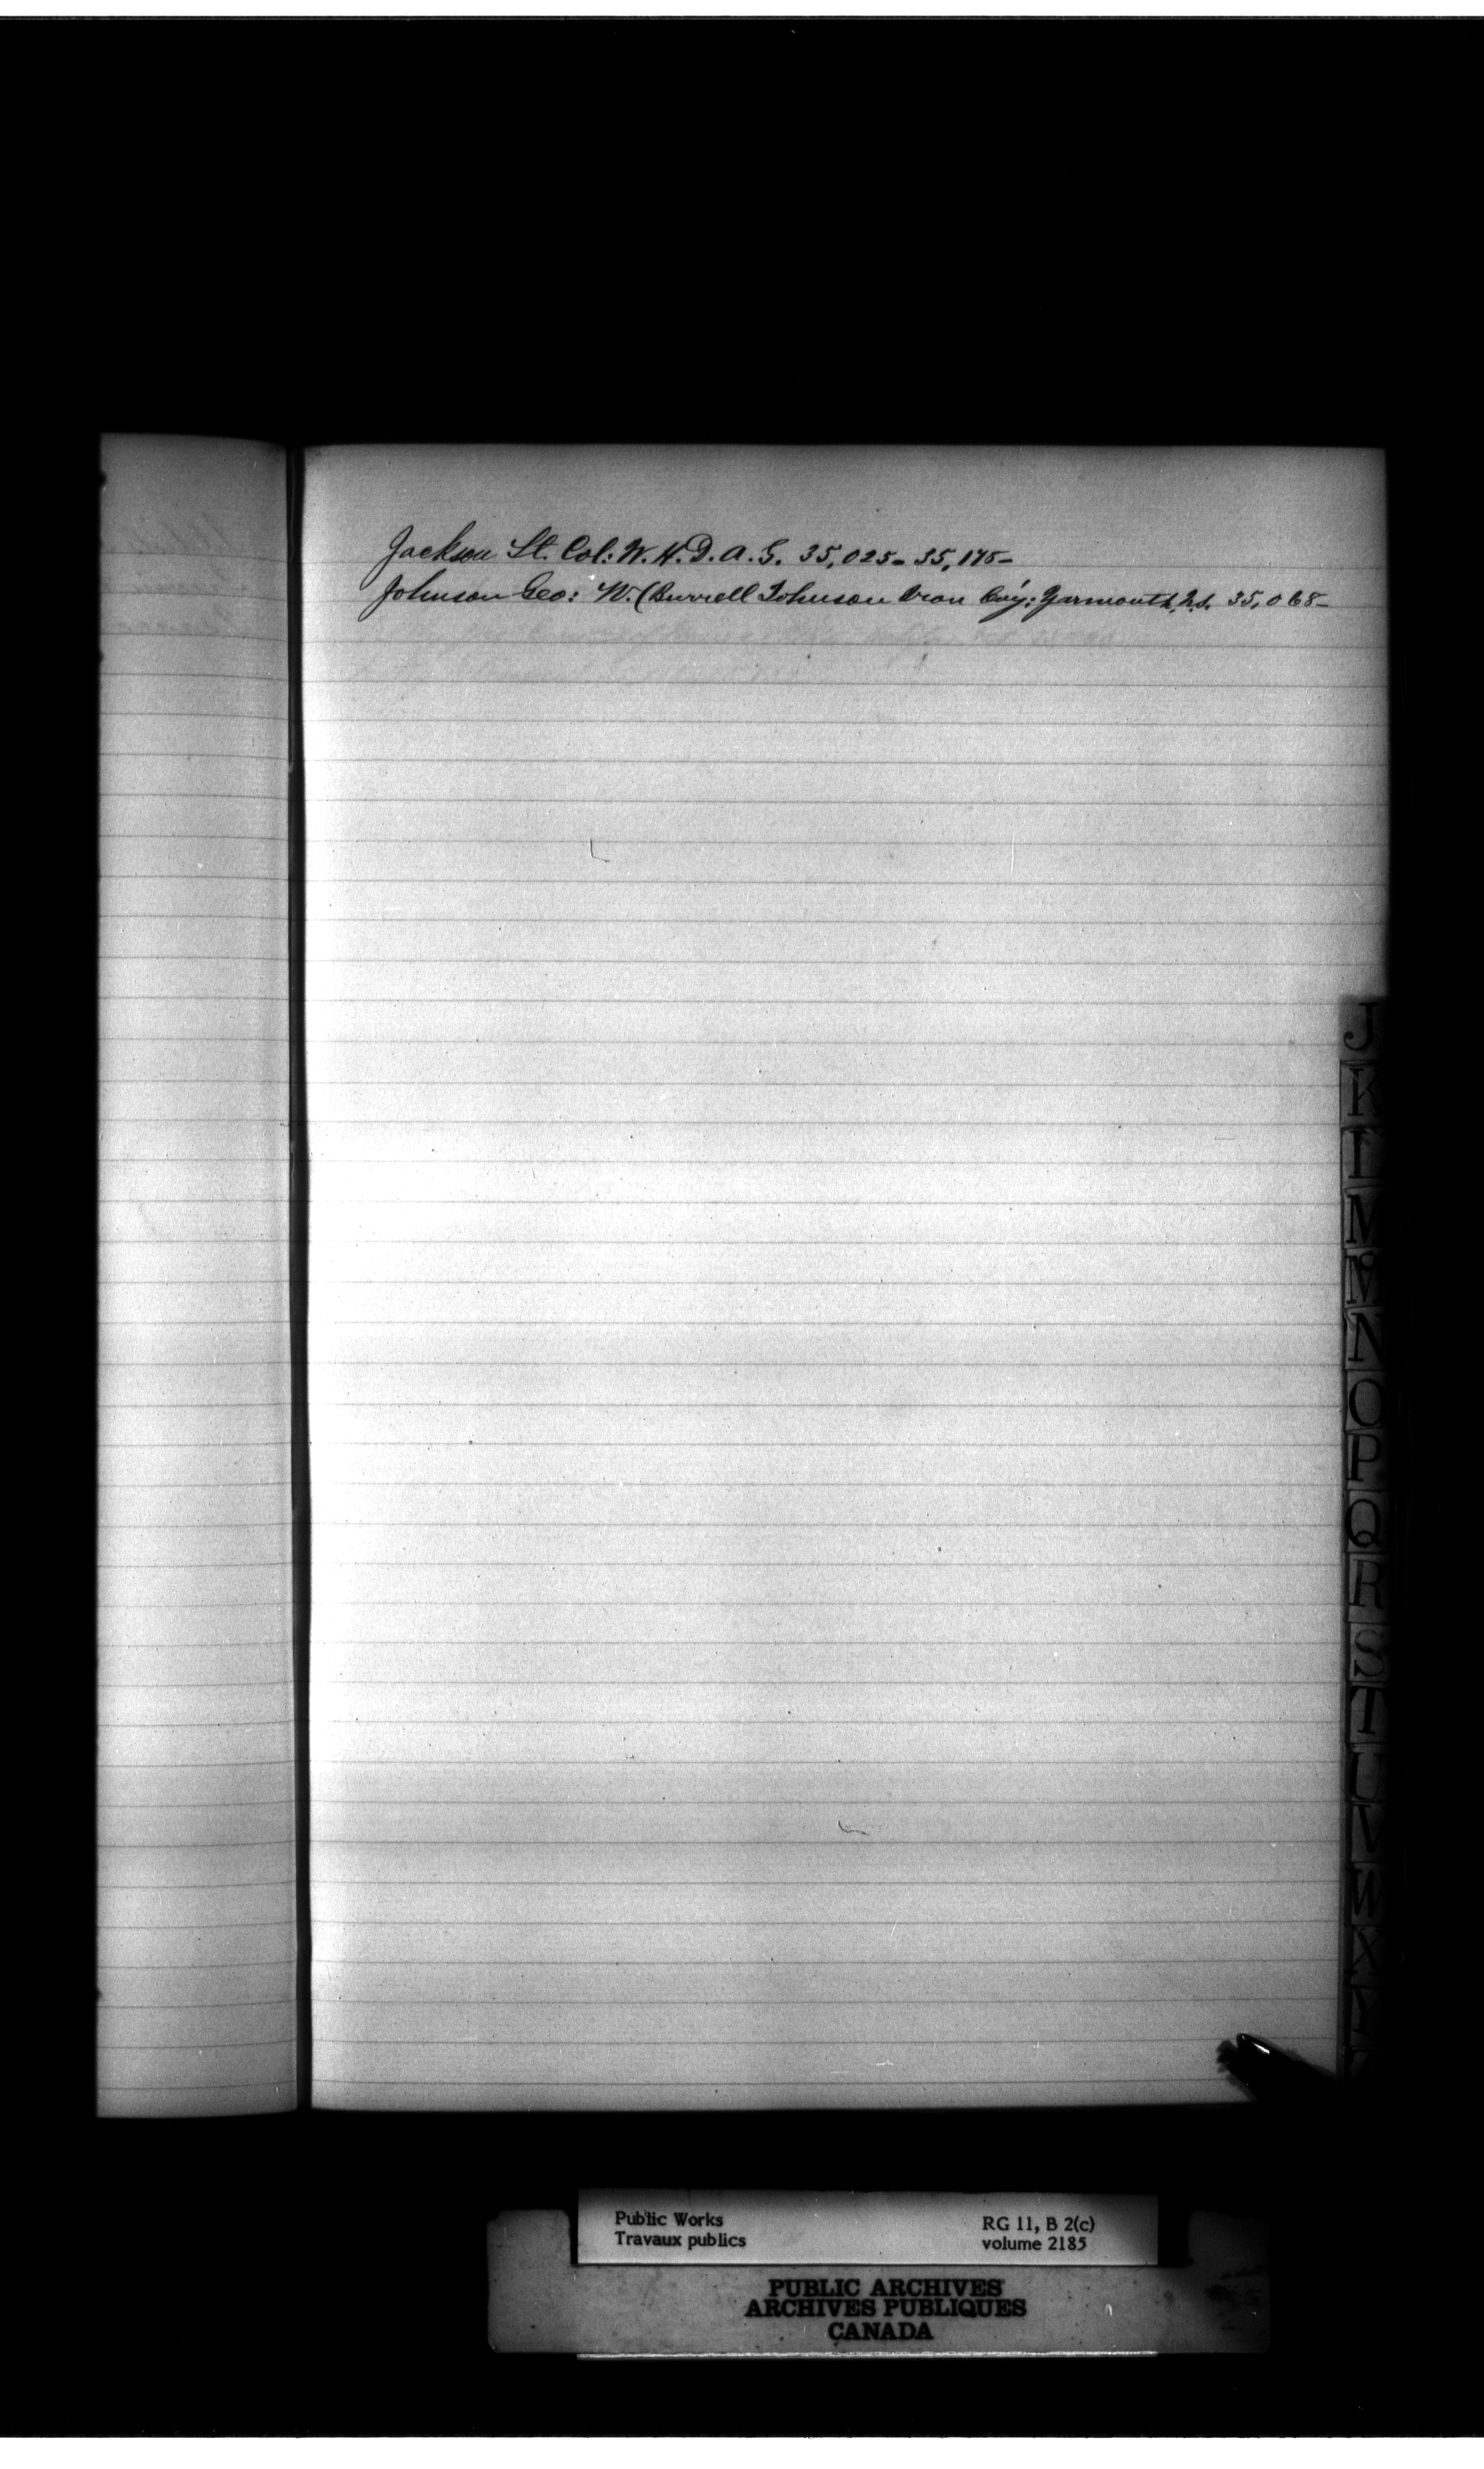 Jackson Lt. Col: W. H. D. A. G. 35,025- 35,175-
Johnson Geo: W. (Burrell Johnson Iron Co'y: Yarmouth, N.S. 35,068-
J
K
L
M
Mc
N
O
P
Q
R
S
T
U
V
W
X
Y
Public Works
Travaux publics
RG 11, B 2(c)
volume 2185
PUBLIC ARCHIVES
ARCHIVES PUBLIQUES
CANADA